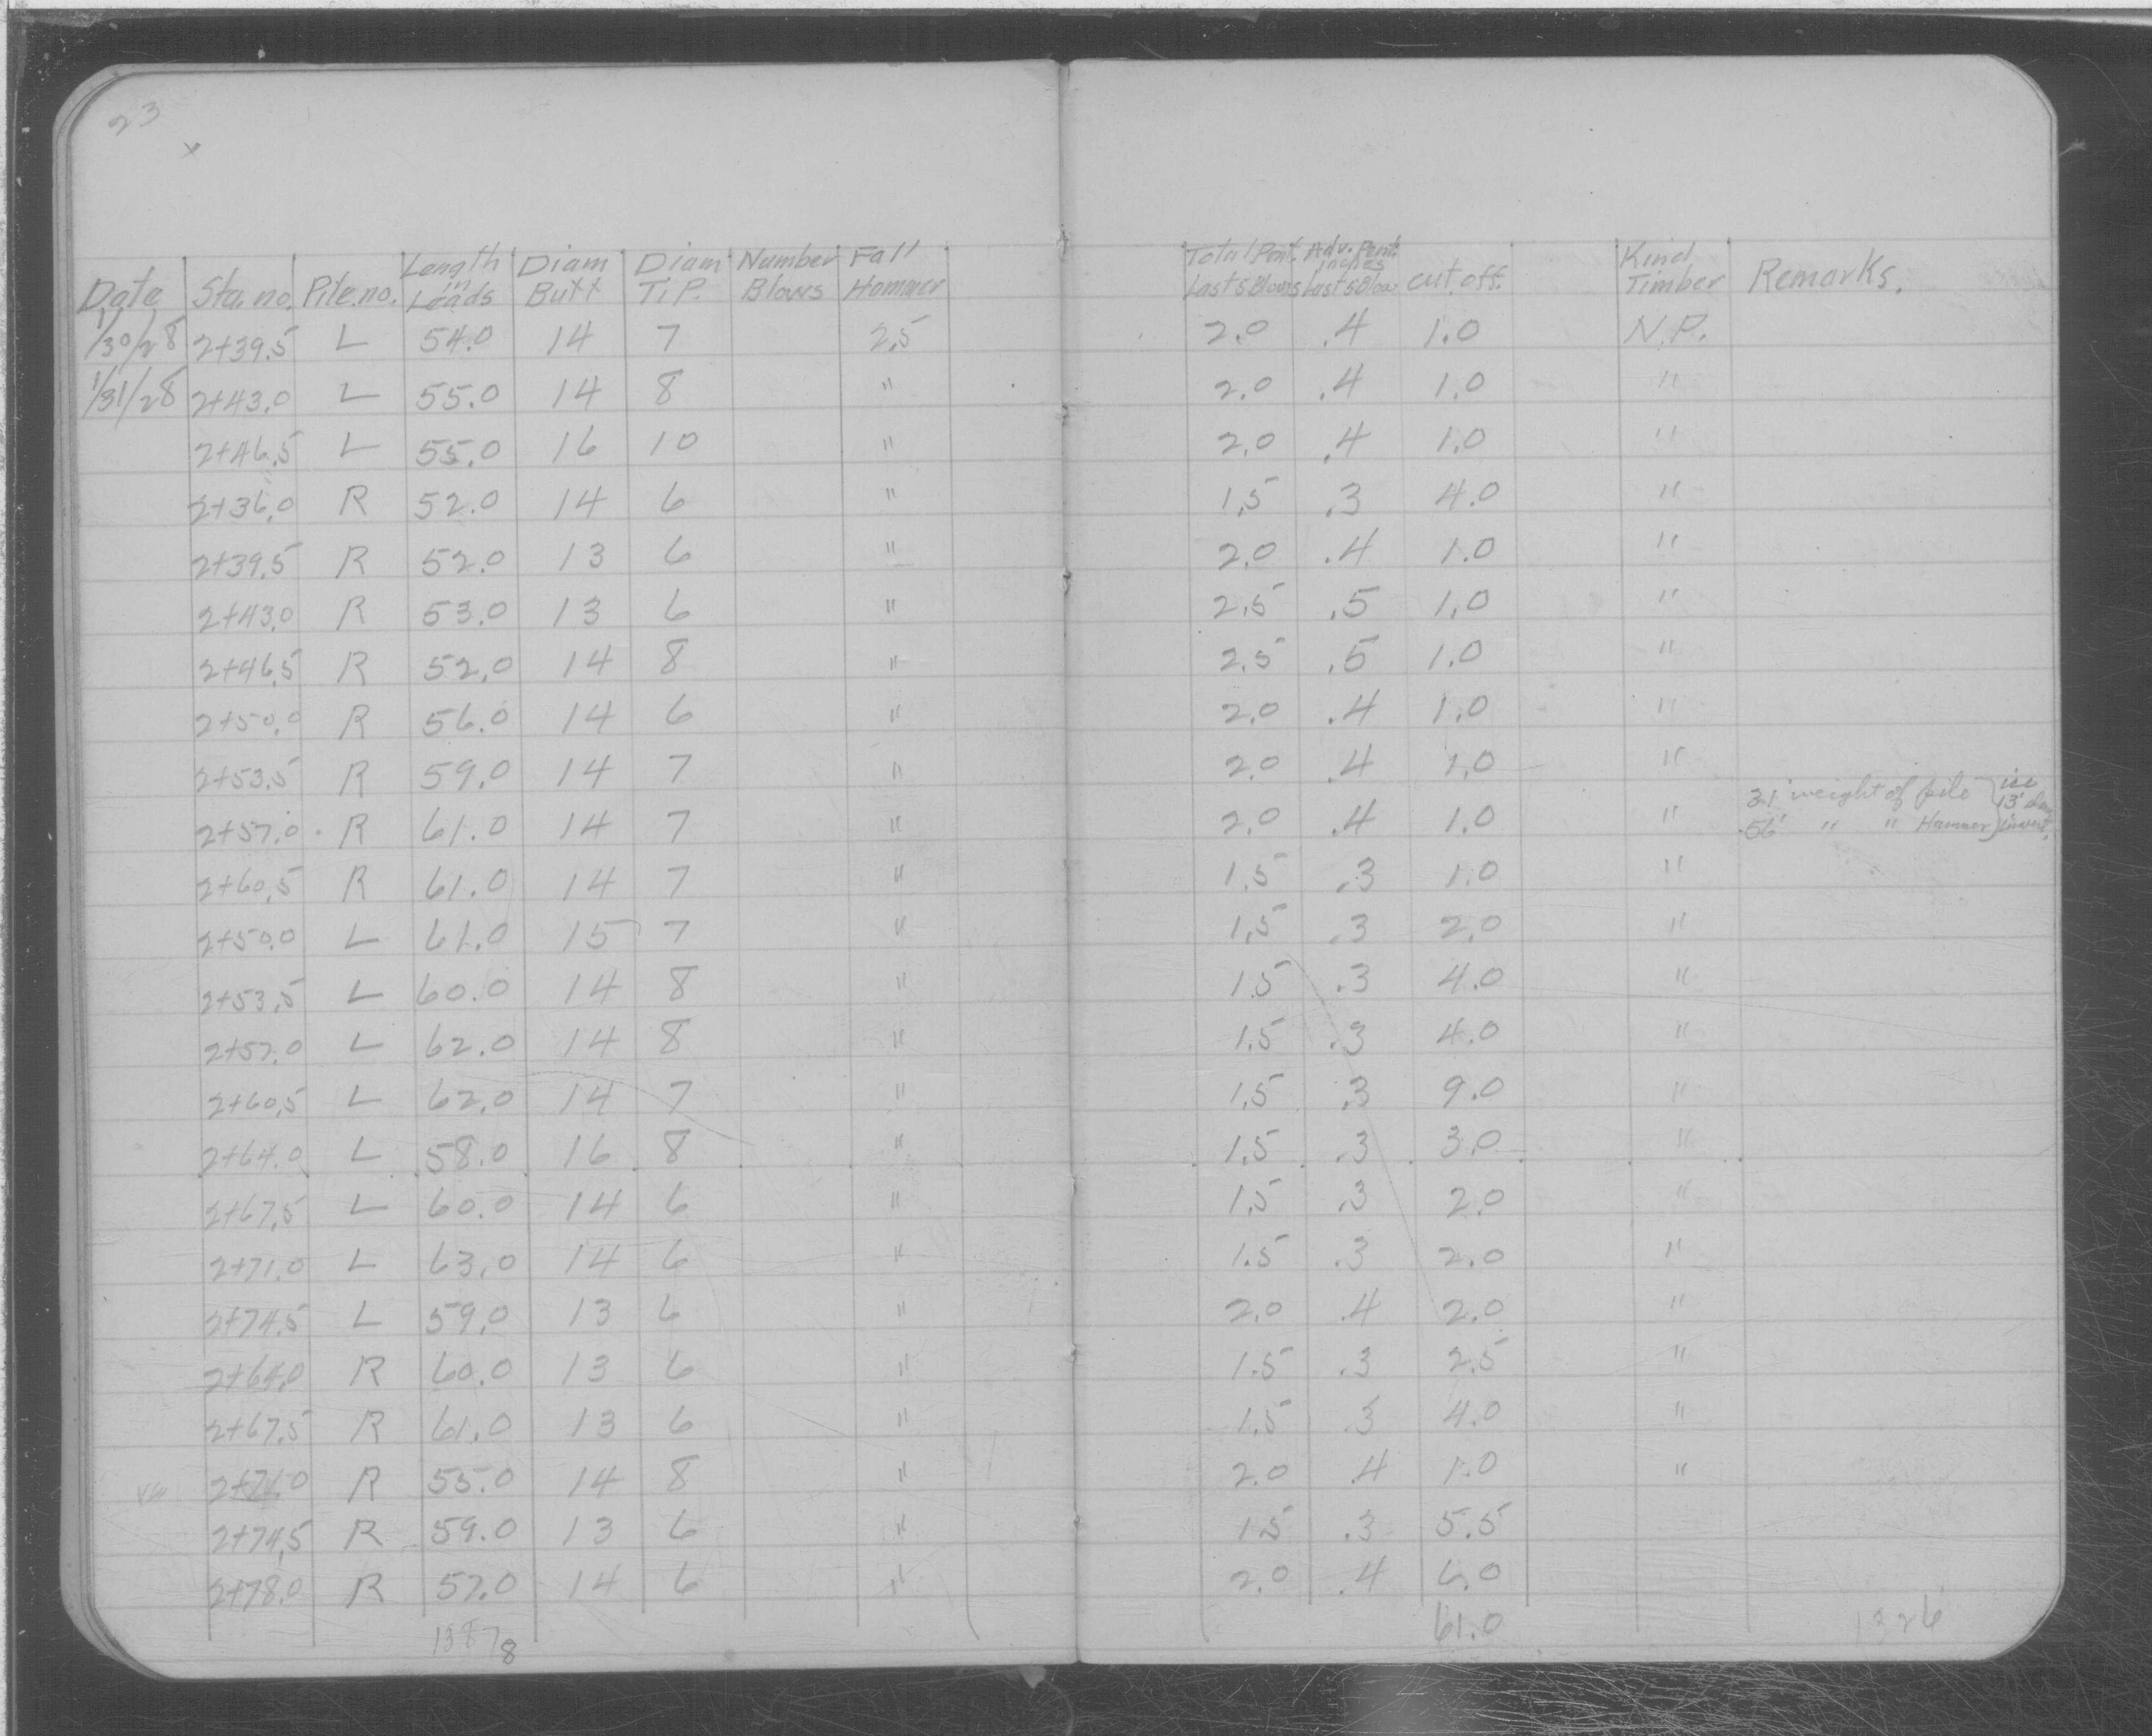 23
x
Date Sta. no. Pile no. Length in Leads Diam Butt Diam Tip. Number Blows Fall Hammer Total Pent. Last 5 Blows Adv. Pent. inches Last 5 Blow cut off. Kind Timber Remarks.
1/30/28 2+39.5 L 54.0 14 7 2.5 2.0 .4 1.0 N.P.
1/31/28 2+43.0 L 55.0 14 8 " 2.0 .4 1.0 "
2+46.5 L 55.0 16 10 " 2.0 .4 1.0 "
2+36.0 R 52.0 14 6 " 1.5 .3 4.0 "
2+39.5 R 52.0 13 6 " 2.0 .4 1.0 "
2+43.0 R 53.0 13 6 " 2.5 .5 1.0 "
2+46.5 R 52.0 14 8 " 2.5 .5 1.0 "
2+50.0 R 56.0 14 6 " 2.0 .4 1.0 "
2+53.5 R 59.0 14 7 " 2.0 .4 1.0 "
31' weight of pile
2+57.0 R 61.0 14 7 " 2.0 .4 1.0 " 56' " " Hammer 13'
2+60.5 R 61.0 14 7 " 1.5 .3 1.0 "
2+50.0 L 61.0 15 7 " 1.5 .3 2.0 "
2+53.5 L 60.0 14 8 " 1.5 .3 4.0 "
2+57.0 L 62.0 14 8 " 1.5 .3 4.0 "
2+60.5 L 62.0 14 7 " 1.5 .3 9.0 "
2+64.0 L 58.0 16 8 " 1.5 .3 3.0 "
2+67.5 L 60.0 14 6 " 1.5 .3 2.0 "
2+71.0 L 63.0 14 6 " 1.5 .3 2.0 "
2+74.5 L 59.0 13 6 " 2.0 .4 2.0 "
2+64.0 R 60.0 13 6 " 1.5 .3 2.5 "
2+67.5 R 61.0 13 6 " 1.5 .3 4.0 "
R 55.0 14 8 " 2.0 .4 1.0 "
2+74.5 R 59.0 13 6 " 1.5 .3 5.5
2+78.0 R 57.0 14 6 " 2.0 .4 6.0
61.0 1326